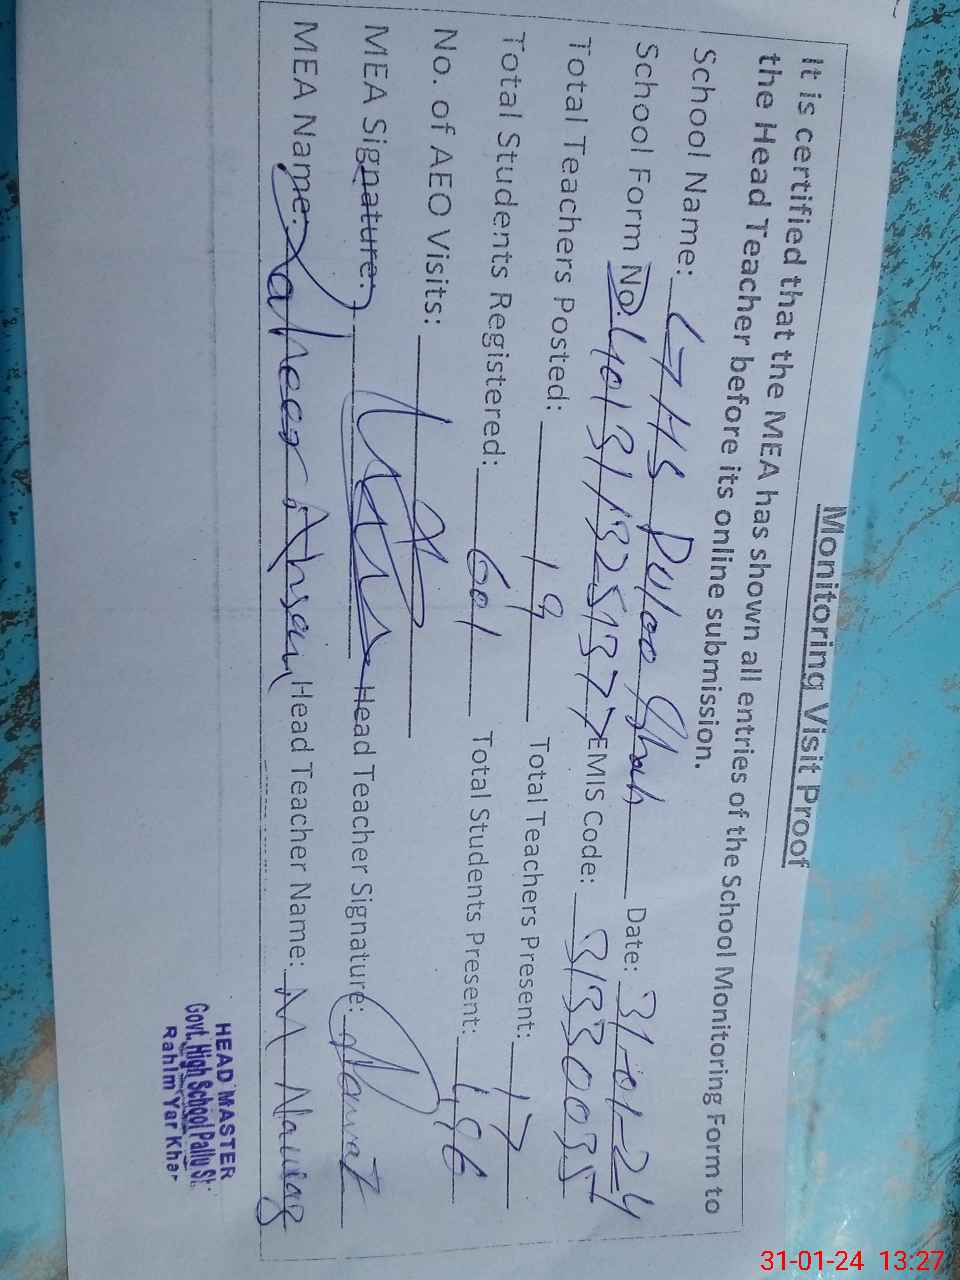 Monitoring Visit Proof
It is certified that the MEA has shown all entries of the School Monitoring Form to
the Head Teacher before its online submission.
School Name: GHS Date: 31-01-24
School Form No. EMIS Code: 31330035
Total Teachers Posted: 19 Total Teachers Present: 17
Total Students Registered: 601 Total Students Present:
No. of AEO Visits:
MEA Signature: Head Teacher Signature:
MEA Name: Ahsan Head Teacher Name: M Nawaz
HEAD MASTER
Govt. High School Pallu St:
Rahim Yar Khan
31-01-24 13:27